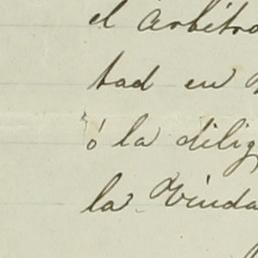 el Arbitro
tad en
ó la dilig
la Viuda